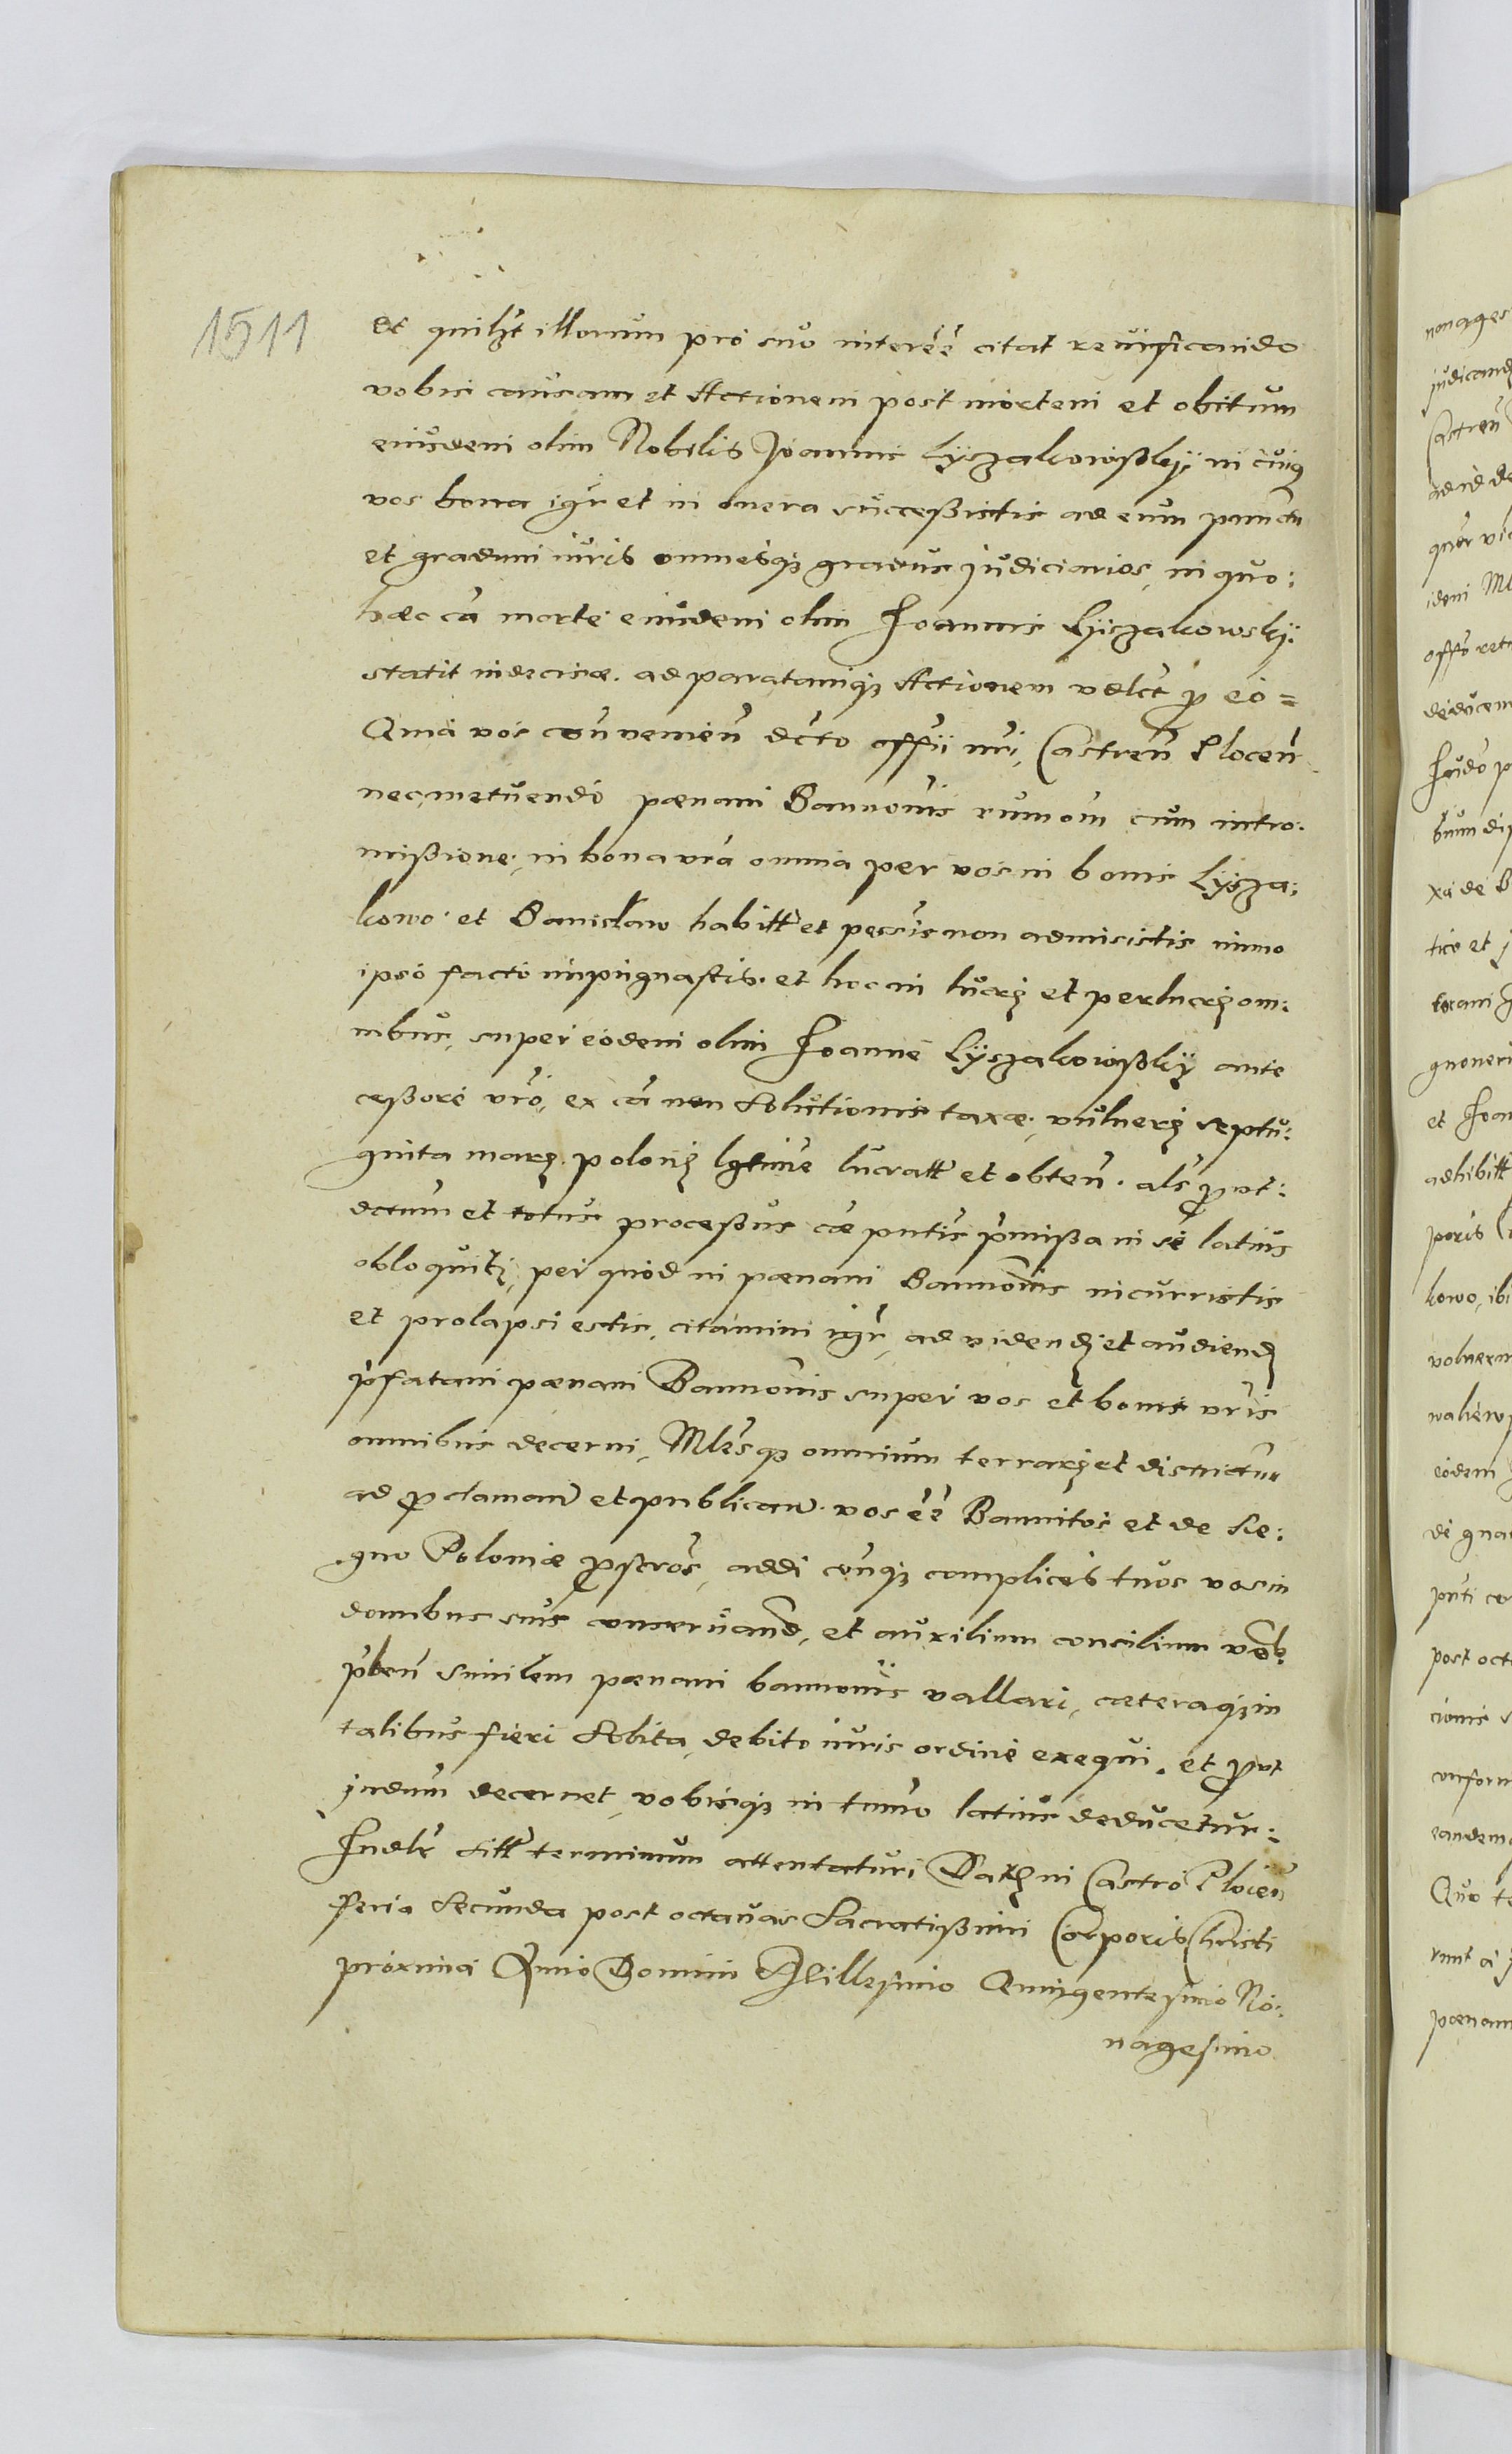 1511
et quilibt illorum pro suo interee citat revificando
vobis causam et Actionem post mortem et obitum
eiusdem olim Nobilis Joannis Lyszakowsky, in cuius
vos bona igr et in onera successistis ad eum punctu
et gradum iuris omnesq gradus judiciarios, in quo:
haec ca morte eiusdem olim Joannis Lyszakowsky
statit indecisa. ad paratamq Actionem videlct p eo =
Quia vos convenien dcto offii nri, Castren Plocen
nec metuendo paenam Bannonis rumom cum intro:
missione, in bona vra omnia per vos in bonis Lysza:
kowo et Banislaw habitt et pessis non admisistis immo
ipso facto impugnastis. et hoc in lucrz et perlucrz om:
nibus, super eodem olim Joanne Lyszakowsky ante
cessore vro, ex ca non Solutionis taxae, vulnerz septu:
ginta marz. polonz lgtime lucratt et obten. als prt:
dctum et totus processus cae pntis pmissa in se latius
obloquitz, per quod in paenam Bannonis incurristis
et prolapsi estis, citamini igr, ad videndz et audiendz
pfatam paenam Bannonis super vos et bonis vris
omnibus decerni, Mlesq omnium terrarz et districtu
ad pclaman et publican. vos ee Bannitos et de Re:
gno Poloniae pscros, addi conq complices tuos vos in
domibus suis conservand, et auxilium consilium vob
pben similem paenam bannonis vallari, caeteraq in
talibus fieri Solita, debito iuris ordine exequi. et prt
judum decernet, vobisq in tmno latius deducetur:
Judlr Sitt terminum attentaturi Datz in Castro Plocen
feria Secunda post octavas Sacratissimi Corporis Christi
proxima Anno Domini Millesimo Quingentesimo No:
nagesimo
nonages
judicand
Castren
ad id de
idem Ml
offo retu
deducen
Judo p
bum di
xa de B
tice et j
et Joan
adhibitt
poris C
kowo, ibi
eodem
de gna
pnti ce
post octa
cionis
conform
eandem
Quo te
runt a
paenam